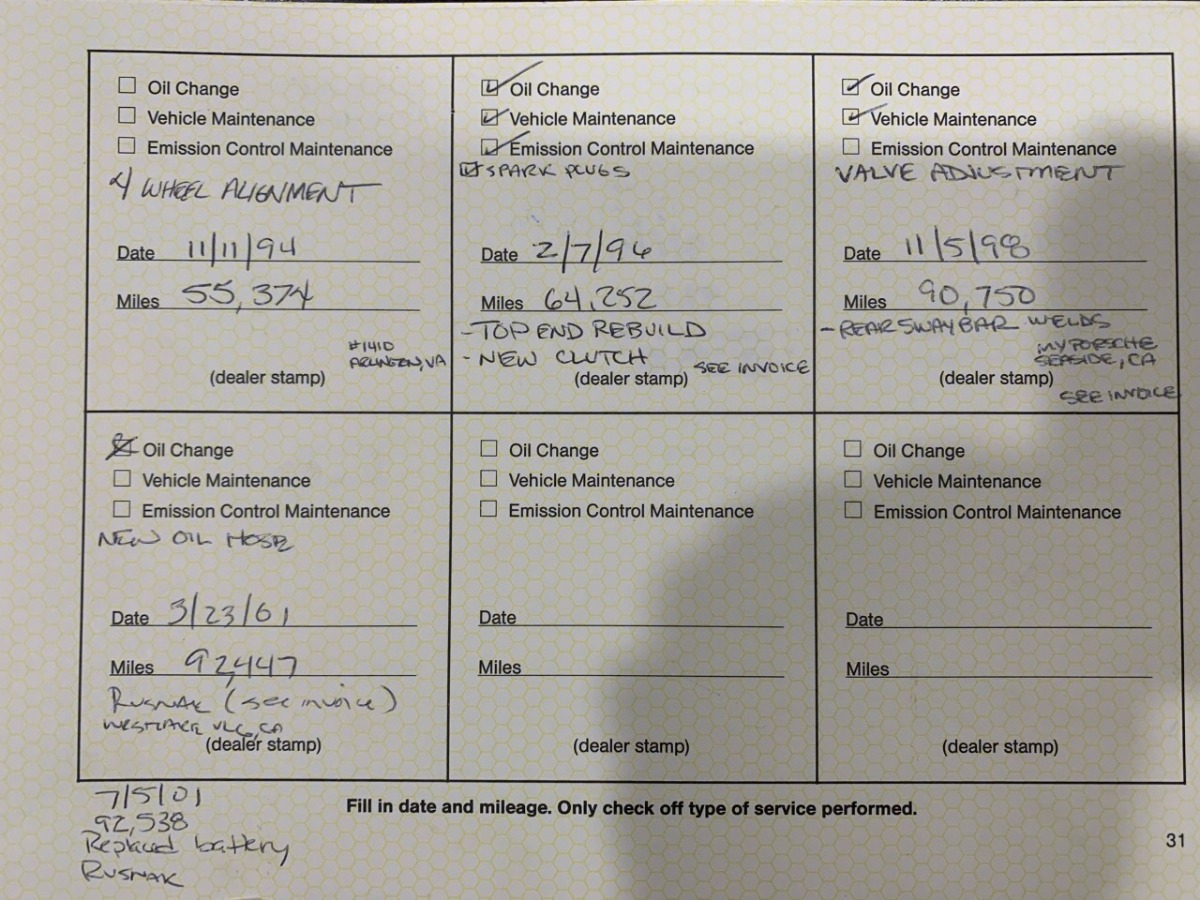 Oil Change
Vehicle Maintenance
Emission Control Maintenance
4 WHEEL ALIGNMENT
Date 11/11/94
Miles 55,374
#1410
ARLINGTON, VA
(dealer stamp)
Oil Change
Vehicle Maintenance
Emission Control Maintenance
SPARK PLUGS
Date 2/7/96
Miles 64,252
-TOP END REBUILD
- NEW CLUTCH
SEE INVOICE
(dealer stamp)
Oil Change
Vehicle Maintenance
Emission Control Maintenance
VALVE ADJUSTMENT
Date 11/5/98
Miles 90,750
- REAR SWAY BAR WELDS
MY PORSCHE
SEASIDE, CA
(dealer stamp)
SEE INVOICE
Oil Change
Vehicle Maintenance
Emission Control Maintenance
NEW OIL HOSE
Date 3/23/01
Miles 92,447
RUSNAK (see invoice)
WESTLAKE VLG, CA
(dealer stamp)
Oil Change
Vehicle Maintenance
Emission Control Maintenance
Date
Miles
(dealer stamp)
Oil Change
Vehicle Maintenance
Emission Control Maintenance
Date
Miles
(dealer stamp)
7/5/01
92,538
Replaced battery
RUSNAK
Fill in date and mileage. Only check off type of service performed.
31